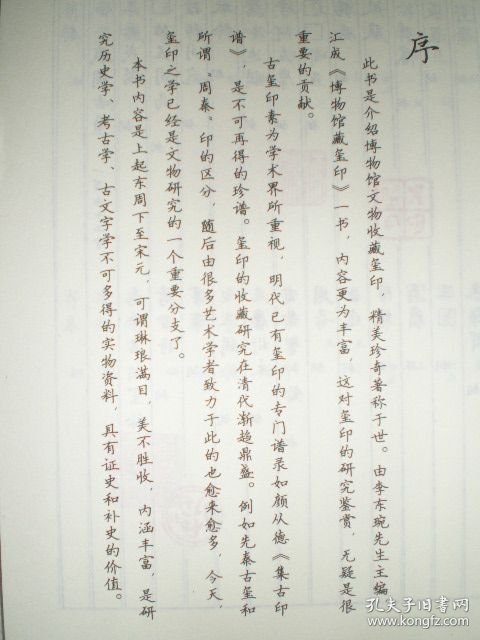 序
此书是介绍博物馆文物收藏玺印，精美珍奇著称于世。由李东琬先生主编
汇成《博物馆藏玺印》一书，内容更为丰富，这对玺印的研究鉴赏，无疑是很
重要的贡献。
古玺印素为学术界所重视，明代已有玺印的专门谱录如颜从德《集古印
谱》，是不可再得的珍谱。玺印的收藏研究在清代渐趋鼎盛。例如先秦古玺和
所谓“周秦”印的区分，随后由很多艺术学者致力于此的也愈来愈多，今天，
玺印之学已经是文物研究的一个重要分支了。
本书内容是上起东周下至宋元，可谓琳琅满目，美不胜收，内涵丰富，是研
究历史学、考古学、古文字学不可多得的实物资料，具有证史和补史的价值。
孔夫子旧书网
kongfz.com